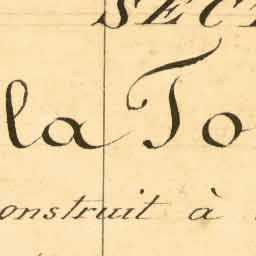 SEC
la To
onstruit à